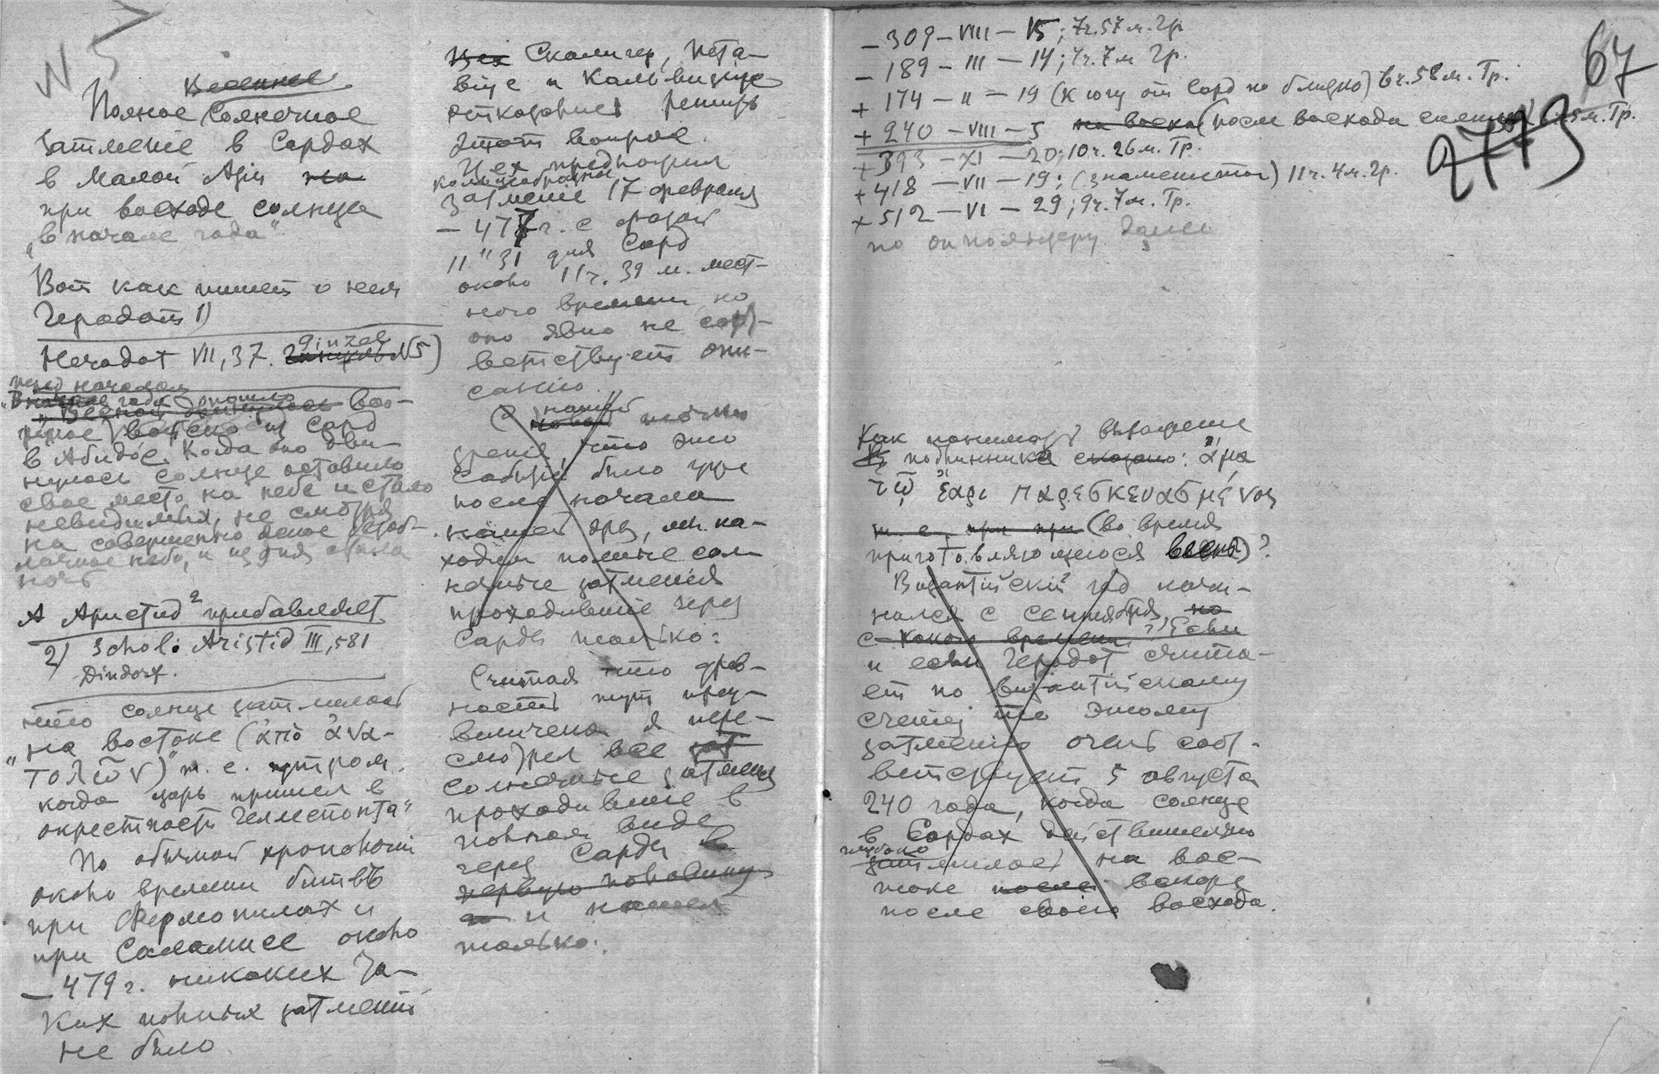 N 5
Весеннее
Полное Солнечное
затмение в Сардах
в Малой Азии на
при восходе солнца
„в начале года"
Вот как пишет о нем
Геродот 1)
Herodot VII, 37. Ginzel N5)
перед началом
года пошло вос-
в Абидос. Когда оно дви-
нулось солнце оставило
свое место на небе и стало
невидимым, не смотря
на совершенно ясное безоб-
лачное небо, и из дня стала
ночь
А Аристид 2 прибавляет
2) Schol: Aristid III, 581
Dindorf.
что солнце затмилось
„на востоке (ἀπὸ ἀνα-
τολῶν)" т. е. утром.
когда царь пришел в
окрестность Геллеспонта"
По обычной хронологии
около времени битвъ
при Фермопилах и
при Саламисе около
— 479 г. никаких та-
ких полных затмений
не было
Скалигер, Пета-
віус и Кальвизиус
отказались решить
этот вопрос.
Цех предложил
кольцеобразное
затмение 17 февраля
— 477 г. с фазой
11."31 для Сард
около 11 ч. 39 м. мест-
ного времени но
оно явно не соот-
ветствует опи-
санию.
С нашей точки
зрения, что это
событие было уже
после начала
нашей эры, мы на-
ходим полные сол
нечные затмения
проходившие через
Сарды только:
Считая что древ-
ность тут преу-
величена я пере-
смотрел все зат
солнечные затмения
проходившие в
полном виде
через Сарды в
первую половину
и нашел
только:
— 309 — VIII — 15; 7ч. 57 м. Гр.
— 189 — III — 14; 7ч. 7 м Гр.
+ 174 — II — 19 (к югу от Сард но близко) 6 ч. 58 м. Гр.
+ 240 — VIII — 5 на восх (после восхода солнца) 5 м. Гр.
+ 393 — XI — 20; 10 ч. 26 м. Гр.
+ 418 — VII — 19; (знаменитое) 11 ч. 4 м. Гр.
+ 512 — VI — 29; 9 ч. 7 м. Гр.
67
2773
Как понимать выражение
подлинника сказано: ἅμα
τῷ ἔαρι παρεσκευασμένος
т. е. при при (во время
приготовляющейся весны)?
Византийский год начи-
нался с сентября, но
с какого времени?) Если
и если Геродот счита-
ет по византийскому
счету то этому
затмению очень соот-
ветствует 5 августа
240 года, когда солнце
в Сардах действительно
затмилось на вос-
токе после вскоре
после своего восхода.